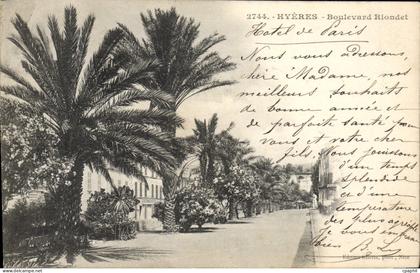 2744. - HYÈRES - Boulevard Riondet
Hotel de Paris
Nous vous adressons,
chère Madame, nos
meilleurs souhaits
de bonne année et
de parfaite santé pour
vous et votre cher
fils. Nous jouissons
d'un temps
splendide
et d'un
des plus agréa
vous
B. L.